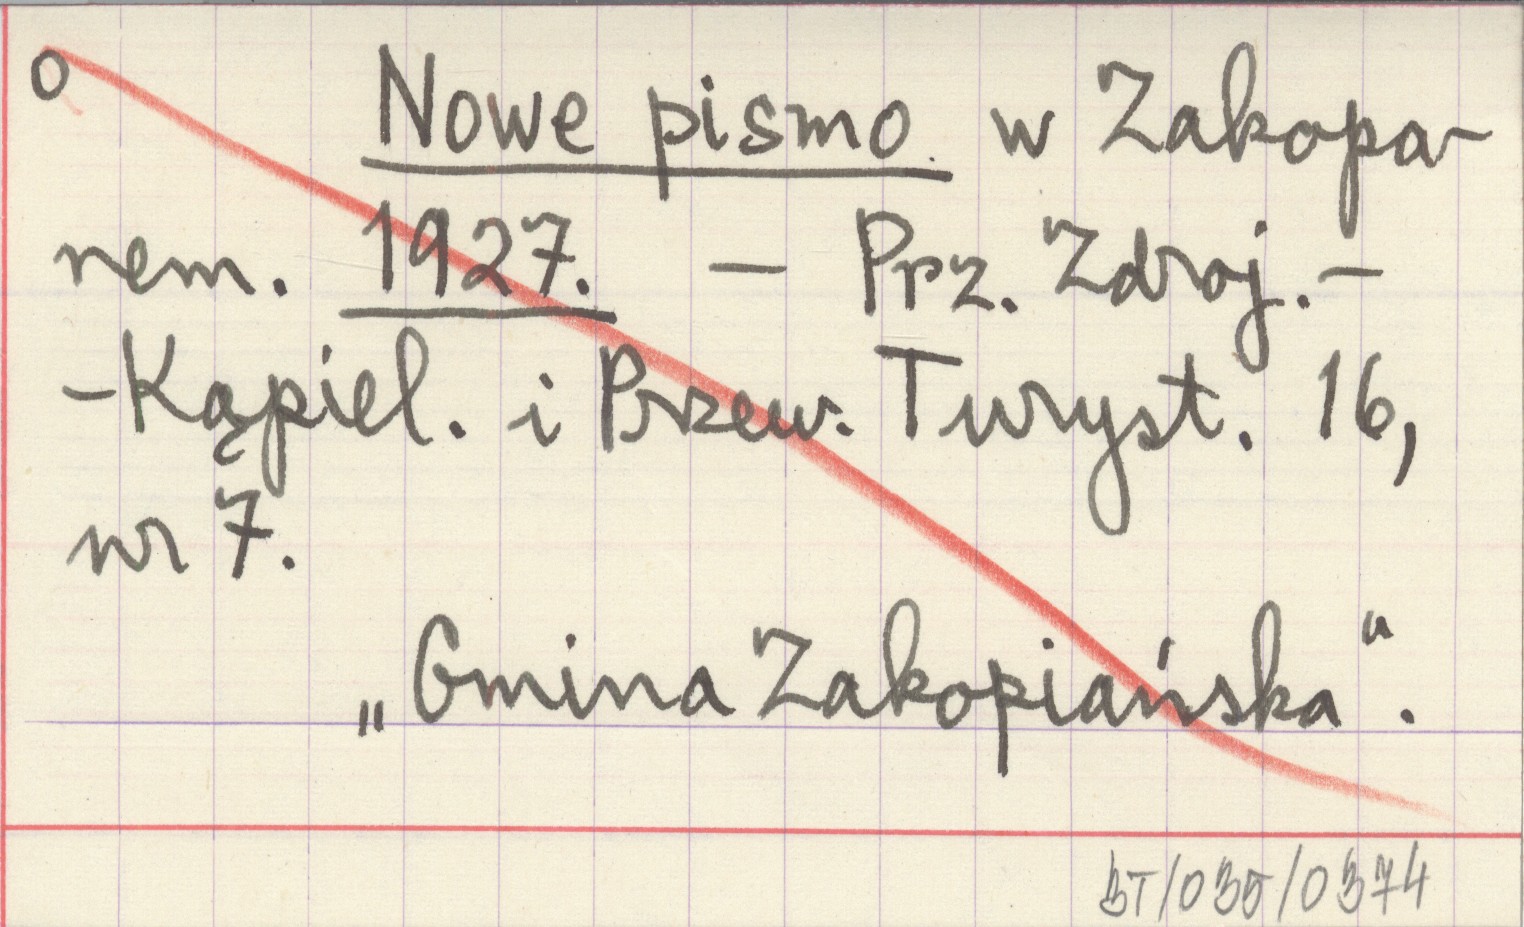 o Nowe pismo w Zakopa-
nem. 1927. — Prz. Zdroj.-
-Kąpiel. i Przew. Turyst. 16,
nr 7.
„Gmina Zakopiańska“.
BT/035/0374